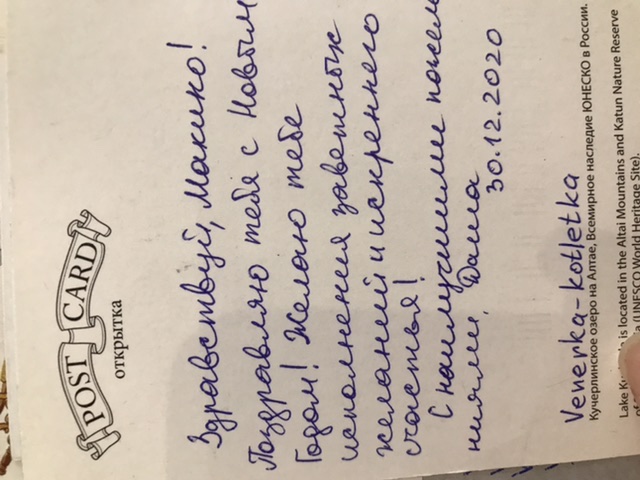 POST CARD
открытка
Здравствуй, Макико!
Поздравляю тебя с Новым
Годом! Желаю тебе
исполнения заветных
желаний и искреннего
счастья!
С наилучшими пожела
ниями, Даша
30.12.2020
Venerka-kotletka
Кучерлинское озеро на Алтае, Всемирное наследие ЮНЕСКО в России.
Lake is located in the Altai Mountains and Katun Nature Reserve
(UNESCO World Heritage Site).